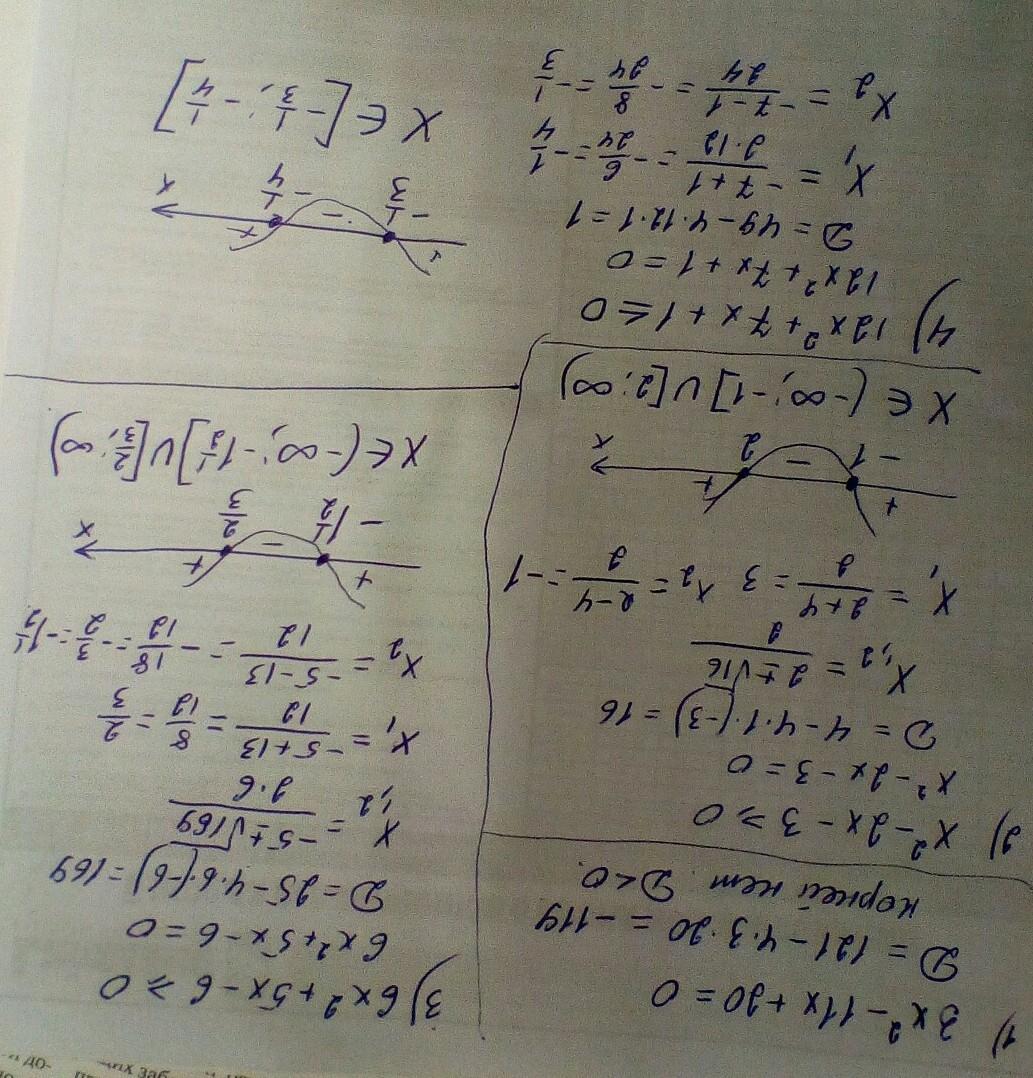 1) 3x² - 11x + 20 = 0
D = 121 - 4·3·20 = -119
корней нет. D<0.
2) x² - 2x - 3 ⩾ 0
x² - 2x - 3 = 0
D = 4 - 4·1·(-3) = 16
x₁,₂ = (2 ± √16)/2
x₁ = (2+4)/2 = 3 x₂ = (2-4)/2 = -1
+ - +
-1 2 x
x ∈ (-∞; -1] ∪ [2; ∞)
3) 6x² + 5x - 6 ⩾ 0
6x² + 5x - 6 = 0
D = 25 - 4·6·(-6) = 169
x₁,₂ = (-5 ± √169)/(2·6)
x₁ = (-5+13)/12 = 8/12 = 2/3
x₂ = (-5-13)/12 = -18/12 = -3/2 = -1 1/2
+ - +
-1 1/2 2/3 x
x ∈ (-∞; -1 1/2] ∪ [2/3; ∞)
4) 12x² + 7x + 1 ⩽ 0
12x² + 7x + 1 = 0
D = 49 - 4·12·1 = 1
x₁ = (-7+1)/(2·12) = -6/24 = -1/4
x₂ = (-7-1)/24 = -8/24 = -1/3
+ - +
-1/3 -1/4 x
x ∈ [-1/3; -1/4]